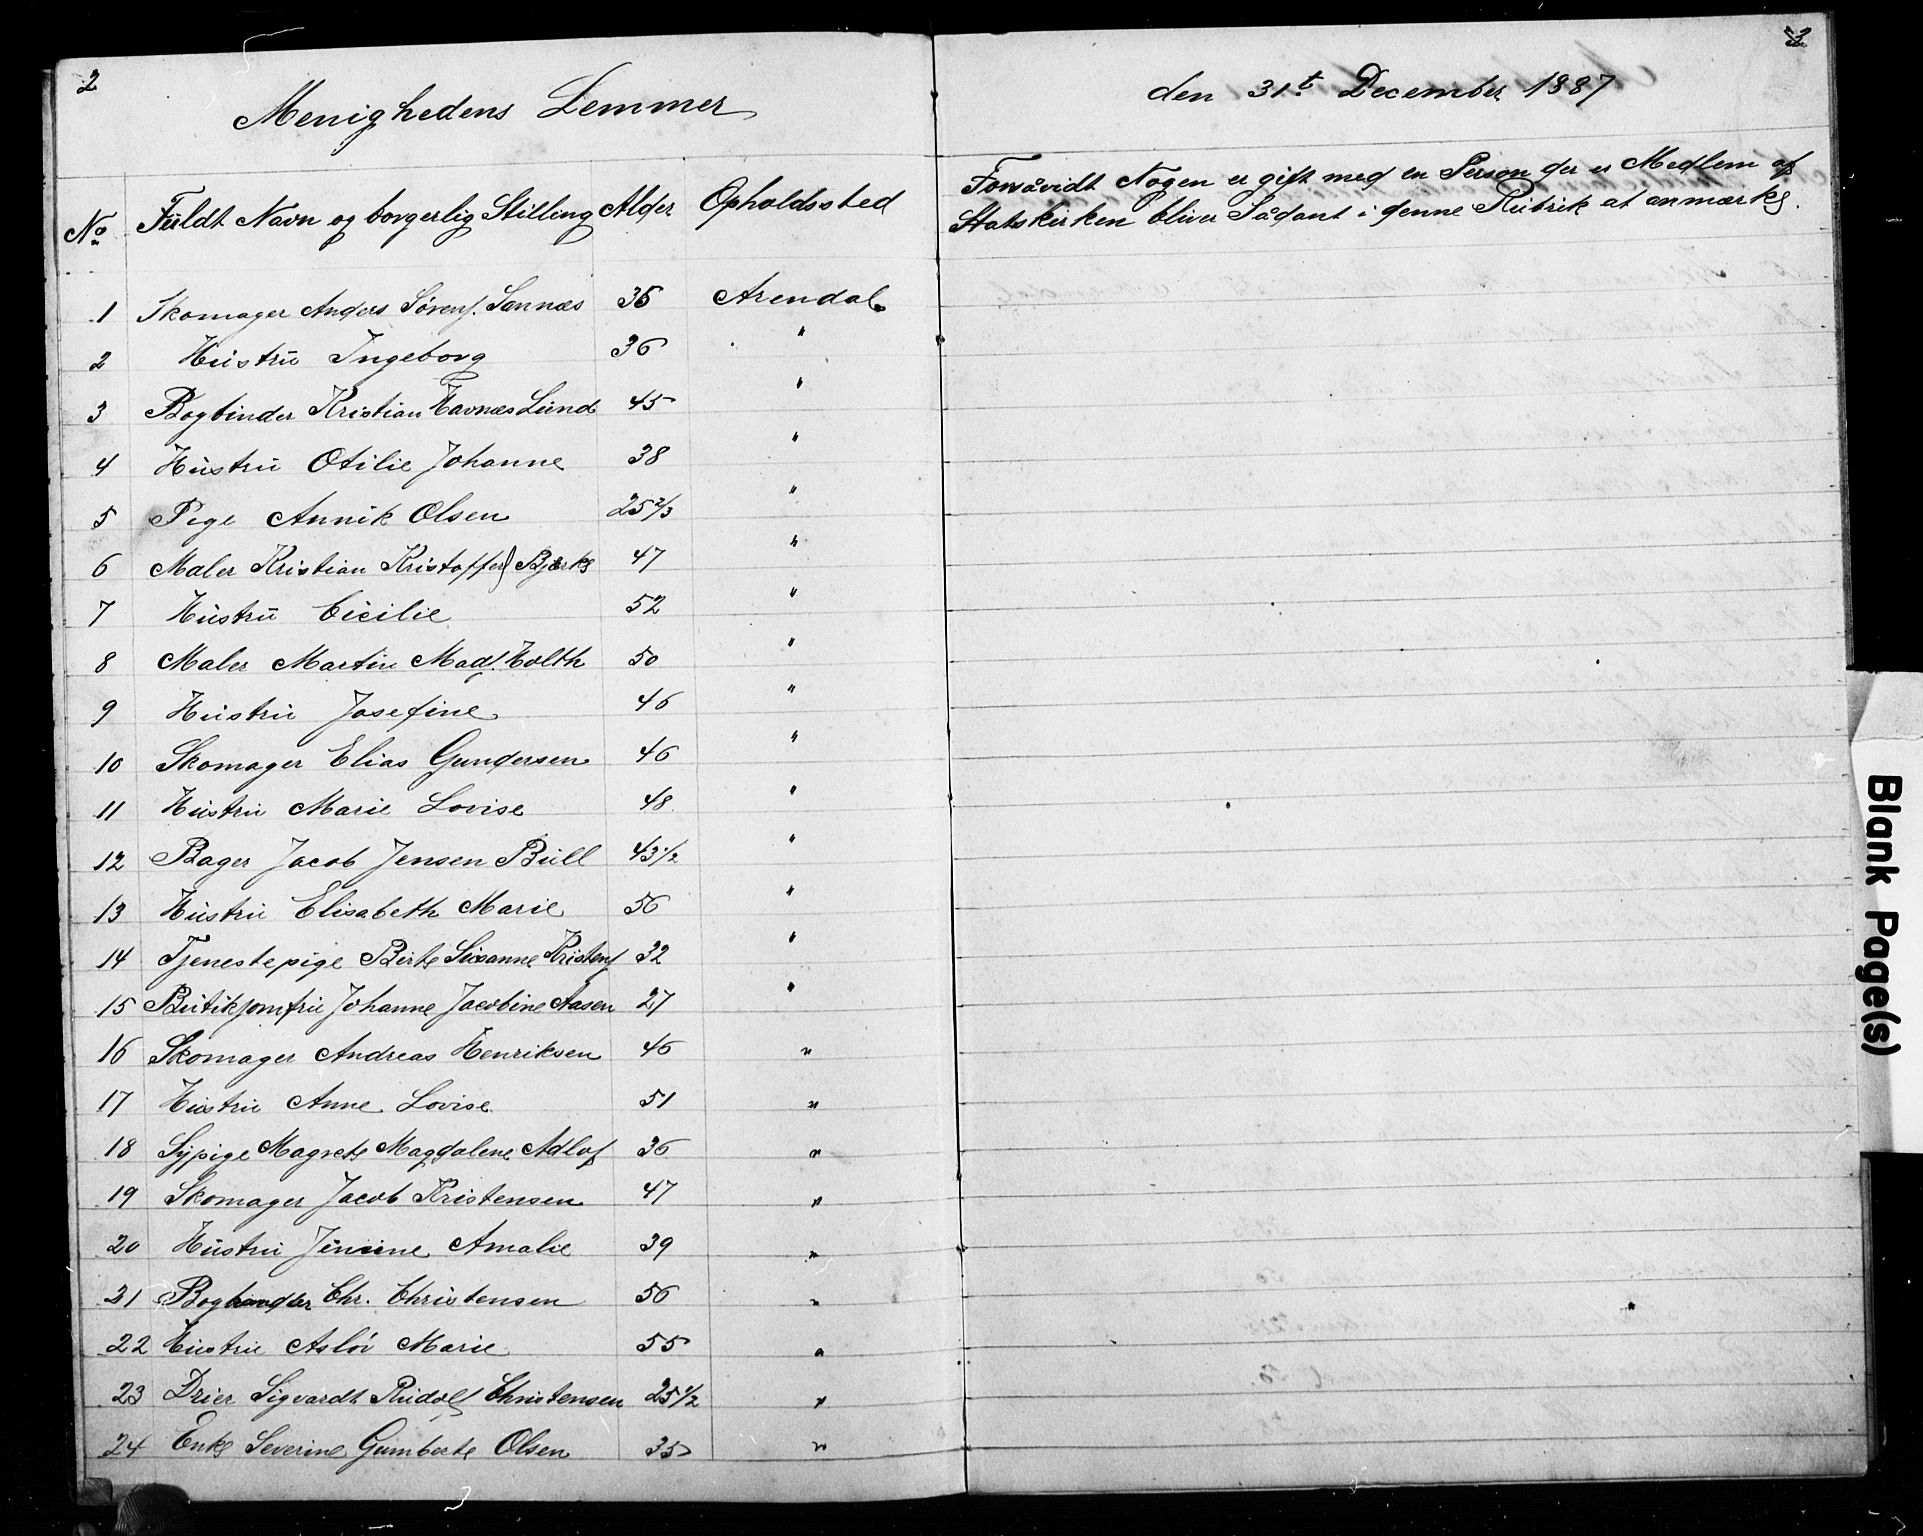 2
Menighedens Lemmer
No Fuldt Navn og borgerlig Stilling Alder Opholdssted
1 Skomager Anders Sørens. Sannæs 36 Arendal
2 Hustru Ingeborg 36 "
3 Bogbinder Kristian Havnæs Lund 45 "
4 Hustru Otilie Johanne 38 "
5 Pige Annik Olsen 25 2/3 "
6 Maler Kristian Kristoffer) Bjerke 47 "
7 Hustru Cicilie 52 "
8 Maler Martin Mads. Holth 50 "
9 Hustru Josefine 46 "
10 Skomager Elias Gundersen 46 "
11 Hustru Marie Lovise 48 "
12 Bager Jacob Jensen Bull 43 1/2 "
13 Hustru Elisabeth Marie 56 "
14 Tjenestepige Birte Susanne Kristens 32 "
15 Butikjomfru Johanne Jacobine Aasen 27 "
16 Skomager Andreas Henriksen 46 "
17 Hustru Anne Lovise 51 "
18 Sypige Magrete Magdalene Adlof 36 "
19 Skomager Jacob Kristensen 47 "
20 Hustru Amalie 39 "
21 Boghandler Chr. Christensen 56 "
22 Hustru Aslöi Marie 55 "
23 Drier Sigvardt Rudolf Christensen 25 1/2 "
24 Enke Severine Gumberte Olsen 35 "
3
den 31t December 1887
Forsåvidt Nogen er gift med en Person der er Medlem af
Statskirken bliver Sådant i denne Rubrik at anmærke.
Blank Page(s)